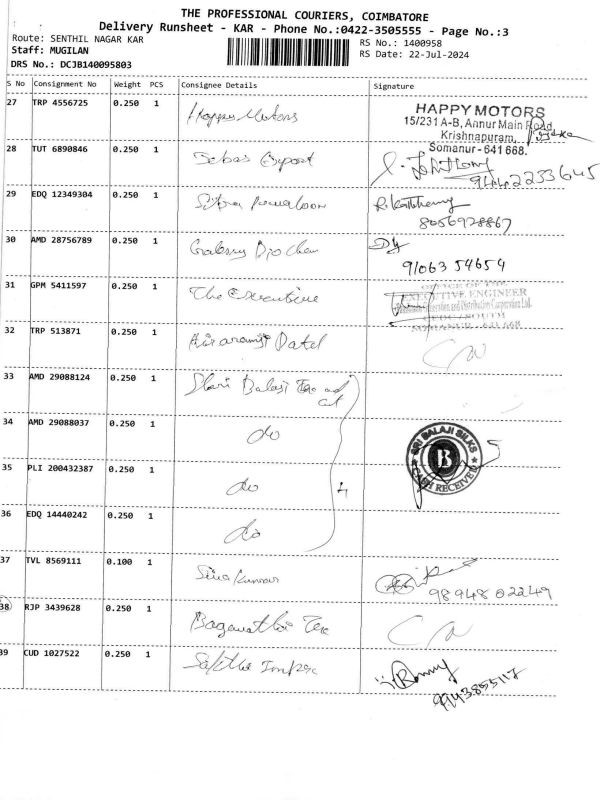 THE PROFESSIONAL COURIERS, COIMBATORE
Delivery Runsheet - KAR - Phone No.:0422-3505555 - Page No.:3
Route: SENTHIL NAGAR KAR
RS No.: 1400958
Staff: MUGILAN
RS Date: 22-Jul-2024
DRS No.: DCJB140095803
S No Consignment No Weight PCS Consignee Details Signature
27 TRP 4556725 0.250 1 Happy Motors
HAPPY MOTORS
15/231 A-B, Annur Main Road
Krishnapuram,
Somanur - 641 668.
28 TUT 6890846 0.250 1 Export
29 EDQ 12349304 0.250 1
8056928867
30 AMD 28756789 0.250 1
9106354654
31 GPM 5411597 0.250 1 The Executive
OFFICE OF THE
EXECUTIVE ENGINEER
Generation and Distribution Corporation Ltd.
SOMANUR - 641 668
32 TRP 513871 0.250 1 Patel
33 AMD 29088124 0.250 1 Balaji
34 AMD 29088037 0.250 1 do
SRI BALAJI SILKS
B
CASH RECEIVED
35 PLI 200432387 0.250 1 do
4
36 EDQ 14440242 0.250 1 do
37 TVL 8569111 0.100 1 Siva Kumar
98948 02249
38 RJP 3439628 0.250 1 Bagavathi Tex
39 CUD 1027522 0.250 1 Sakthi Impex
9943855117